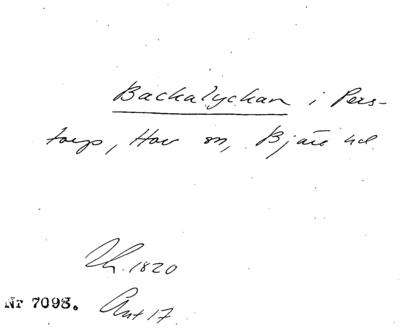 Backalyckan i Pers-
torp, Hov sn, Bjäre hd
Lh. 1820
Nr 7098. Akt 17